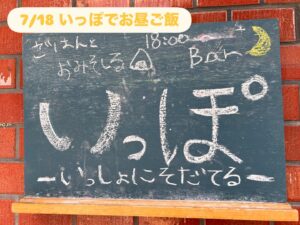 7/18 いっぽでお昼ご飯
ごはんと
おみそしる
18:00〜
Bar
いっぽ
ーいっしょにそだてるー